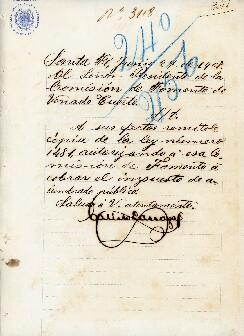 Nº 3418
Santa Fé, Junio 27 de 1908.
Al Señor Presidente de la
Comisión de Fomento de
Venado Tuerto.
S/d.
A sus efectos remito
cópia de la ley número
1481 autorizando á esa Co
misión de Fomento á
cobrar el impuesto de a-
lumbrado público.
Saludo á V. atentamente.